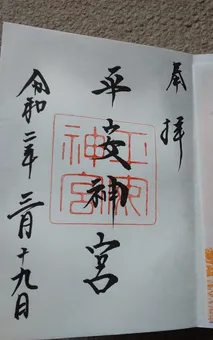 奉拝
平安神宮
平安神宮
令和二年三月十九日